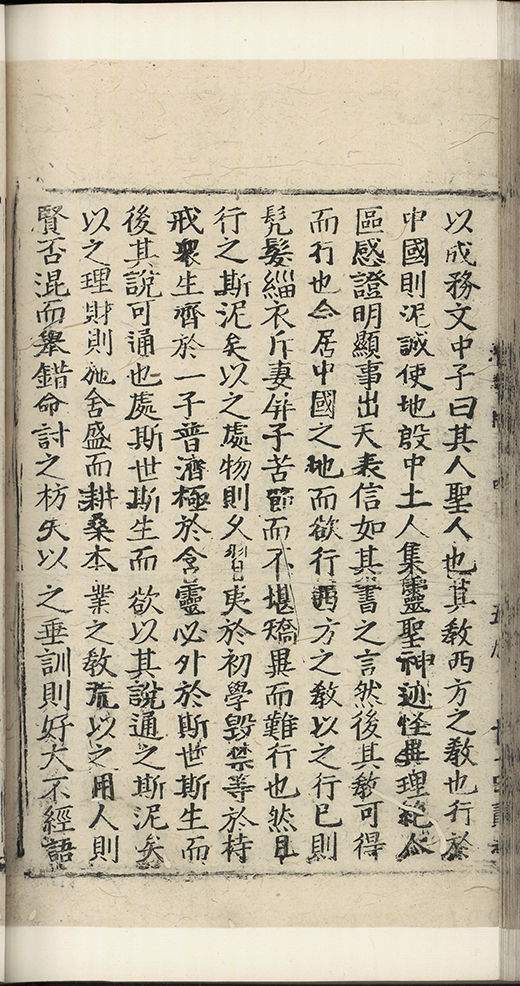 以成務文中子曰其人聖人也其教西方之教也行於
中國則泥誠使地殷中土人集靈聖神迹怪異理絶人
區感證明顯事出天表信如其書之言然後其教可得
而行也今居中國之地而欲行西方之教以之行已則
髠髮緇衣斥妻屏子苦節而不堪矯異而難行也然且
行之斯泥矣以之處物則久習夷於初學毀禁等於持
戒衆生齊於一子普濟極於含靈必外於斯世斯生而
後其說可通也處斯世斯生而欲以其說通之斯泥矣
以之理財則施舍盛而耕桑本業之教荒以之用人則
賢否混而舉錯命討之枋失以之垂訓則好大不經語